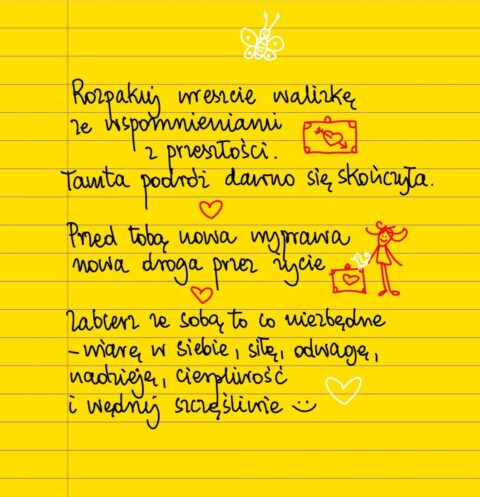 Rozpakuj wreszcie walizkę
ze wspomnieniami
z przeszłości.
Tamta podróż dawno się skończyła.
Przed tobą nowa wyprawa
nowa droga przez życie
zabierz ze sobą to co niezbędne
– wiarę w siebie, siłę, odwagę,
nadzieję, cierpliwość
i wędruj szczęśliwie :)